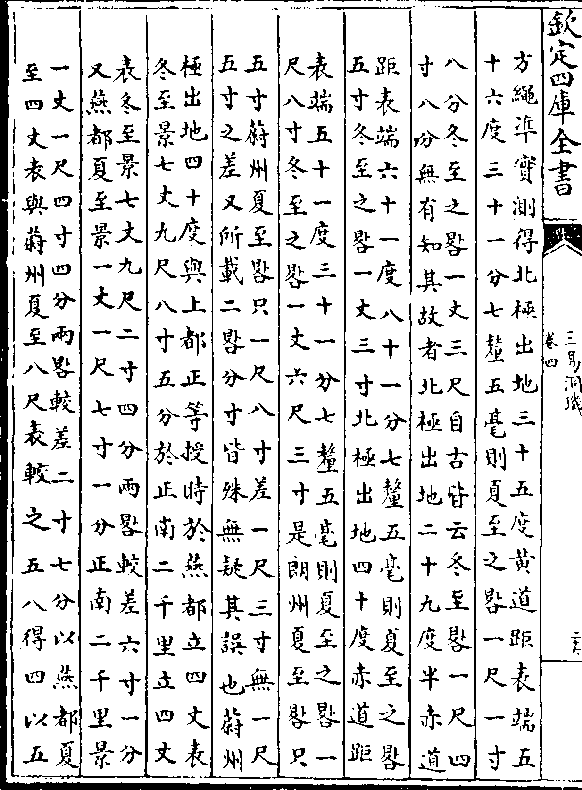 欽定四庫全書
三易洞璣
卷四
方繩準實測得北極出地三十五度黃道距表端五
十六度三十一分七釐五毫則夏至之晷一尺一寸
八分冬至之晷一丈三尺自古皆云冬至晷一尺四
寸八分無有知其故者北極出地二十九度半赤道
距表端六十一度八十一分七釐五毫則夏至之晷
五寸冬至之晷一丈三寸北極出地四十度赤道距
表端五十一度三十一分七釐五毫則夏至之晷一
尺八寸冬至之晷一丈六尺三寸是朗州夏至晷只
五寸蔚州夏至晷只一尺八寸差一尺三寸無一尺
五寸之差又所載二晷分寸皆殊無疑其誤也蔚州
極出地四十度與上都正等授時於燕都立四丈表
冬至景七丈九尺八寸五分於正南二千里立四丈
表冬至景七丈九尺二寸四分兩晷較差六寸一分
又燕都夏至景一丈一尺七寸一分正南二千里景
一丈一尺四寸四分兩晷較差二寸七分以燕都夏
至四丈表與蔚州夏至八尺表較之五八得四以五